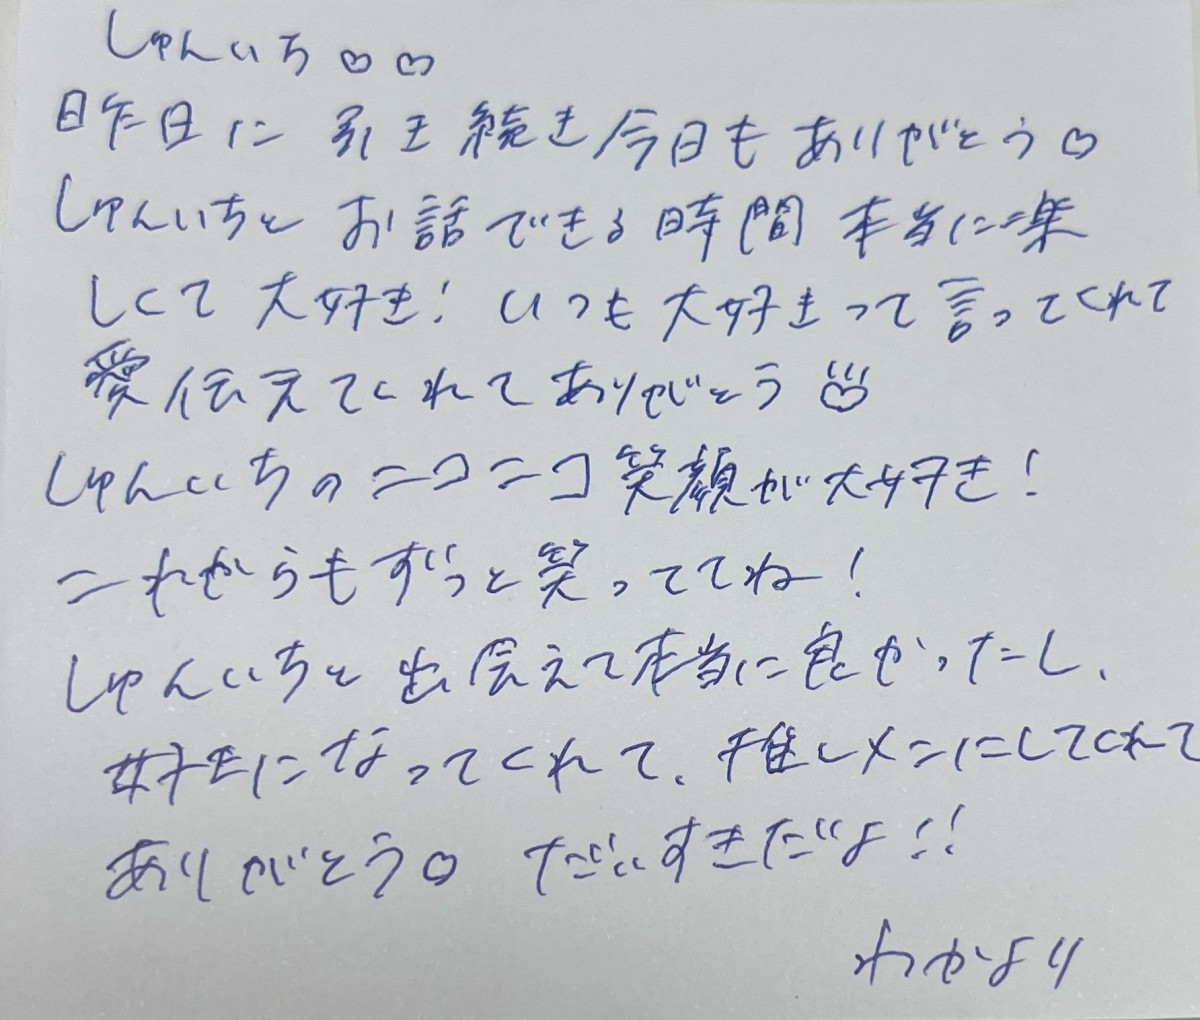 しゅんいち♡♡
昨日に引き続き今日もありがとう♡
しゅんいちとお話できる時間本当に楽
しくて大好き!いつも大好きって言ってくれて
愛伝えてくれてありがとう
しゅんいちのニコニコ笑顔が大好き!
これからもずっと笑っててね!
しゅんいちと出会えて本当に良かったし、
好きになってくれて、推しメンにしてくれて
ありがとう♡ だいすきだよ!!
わかより